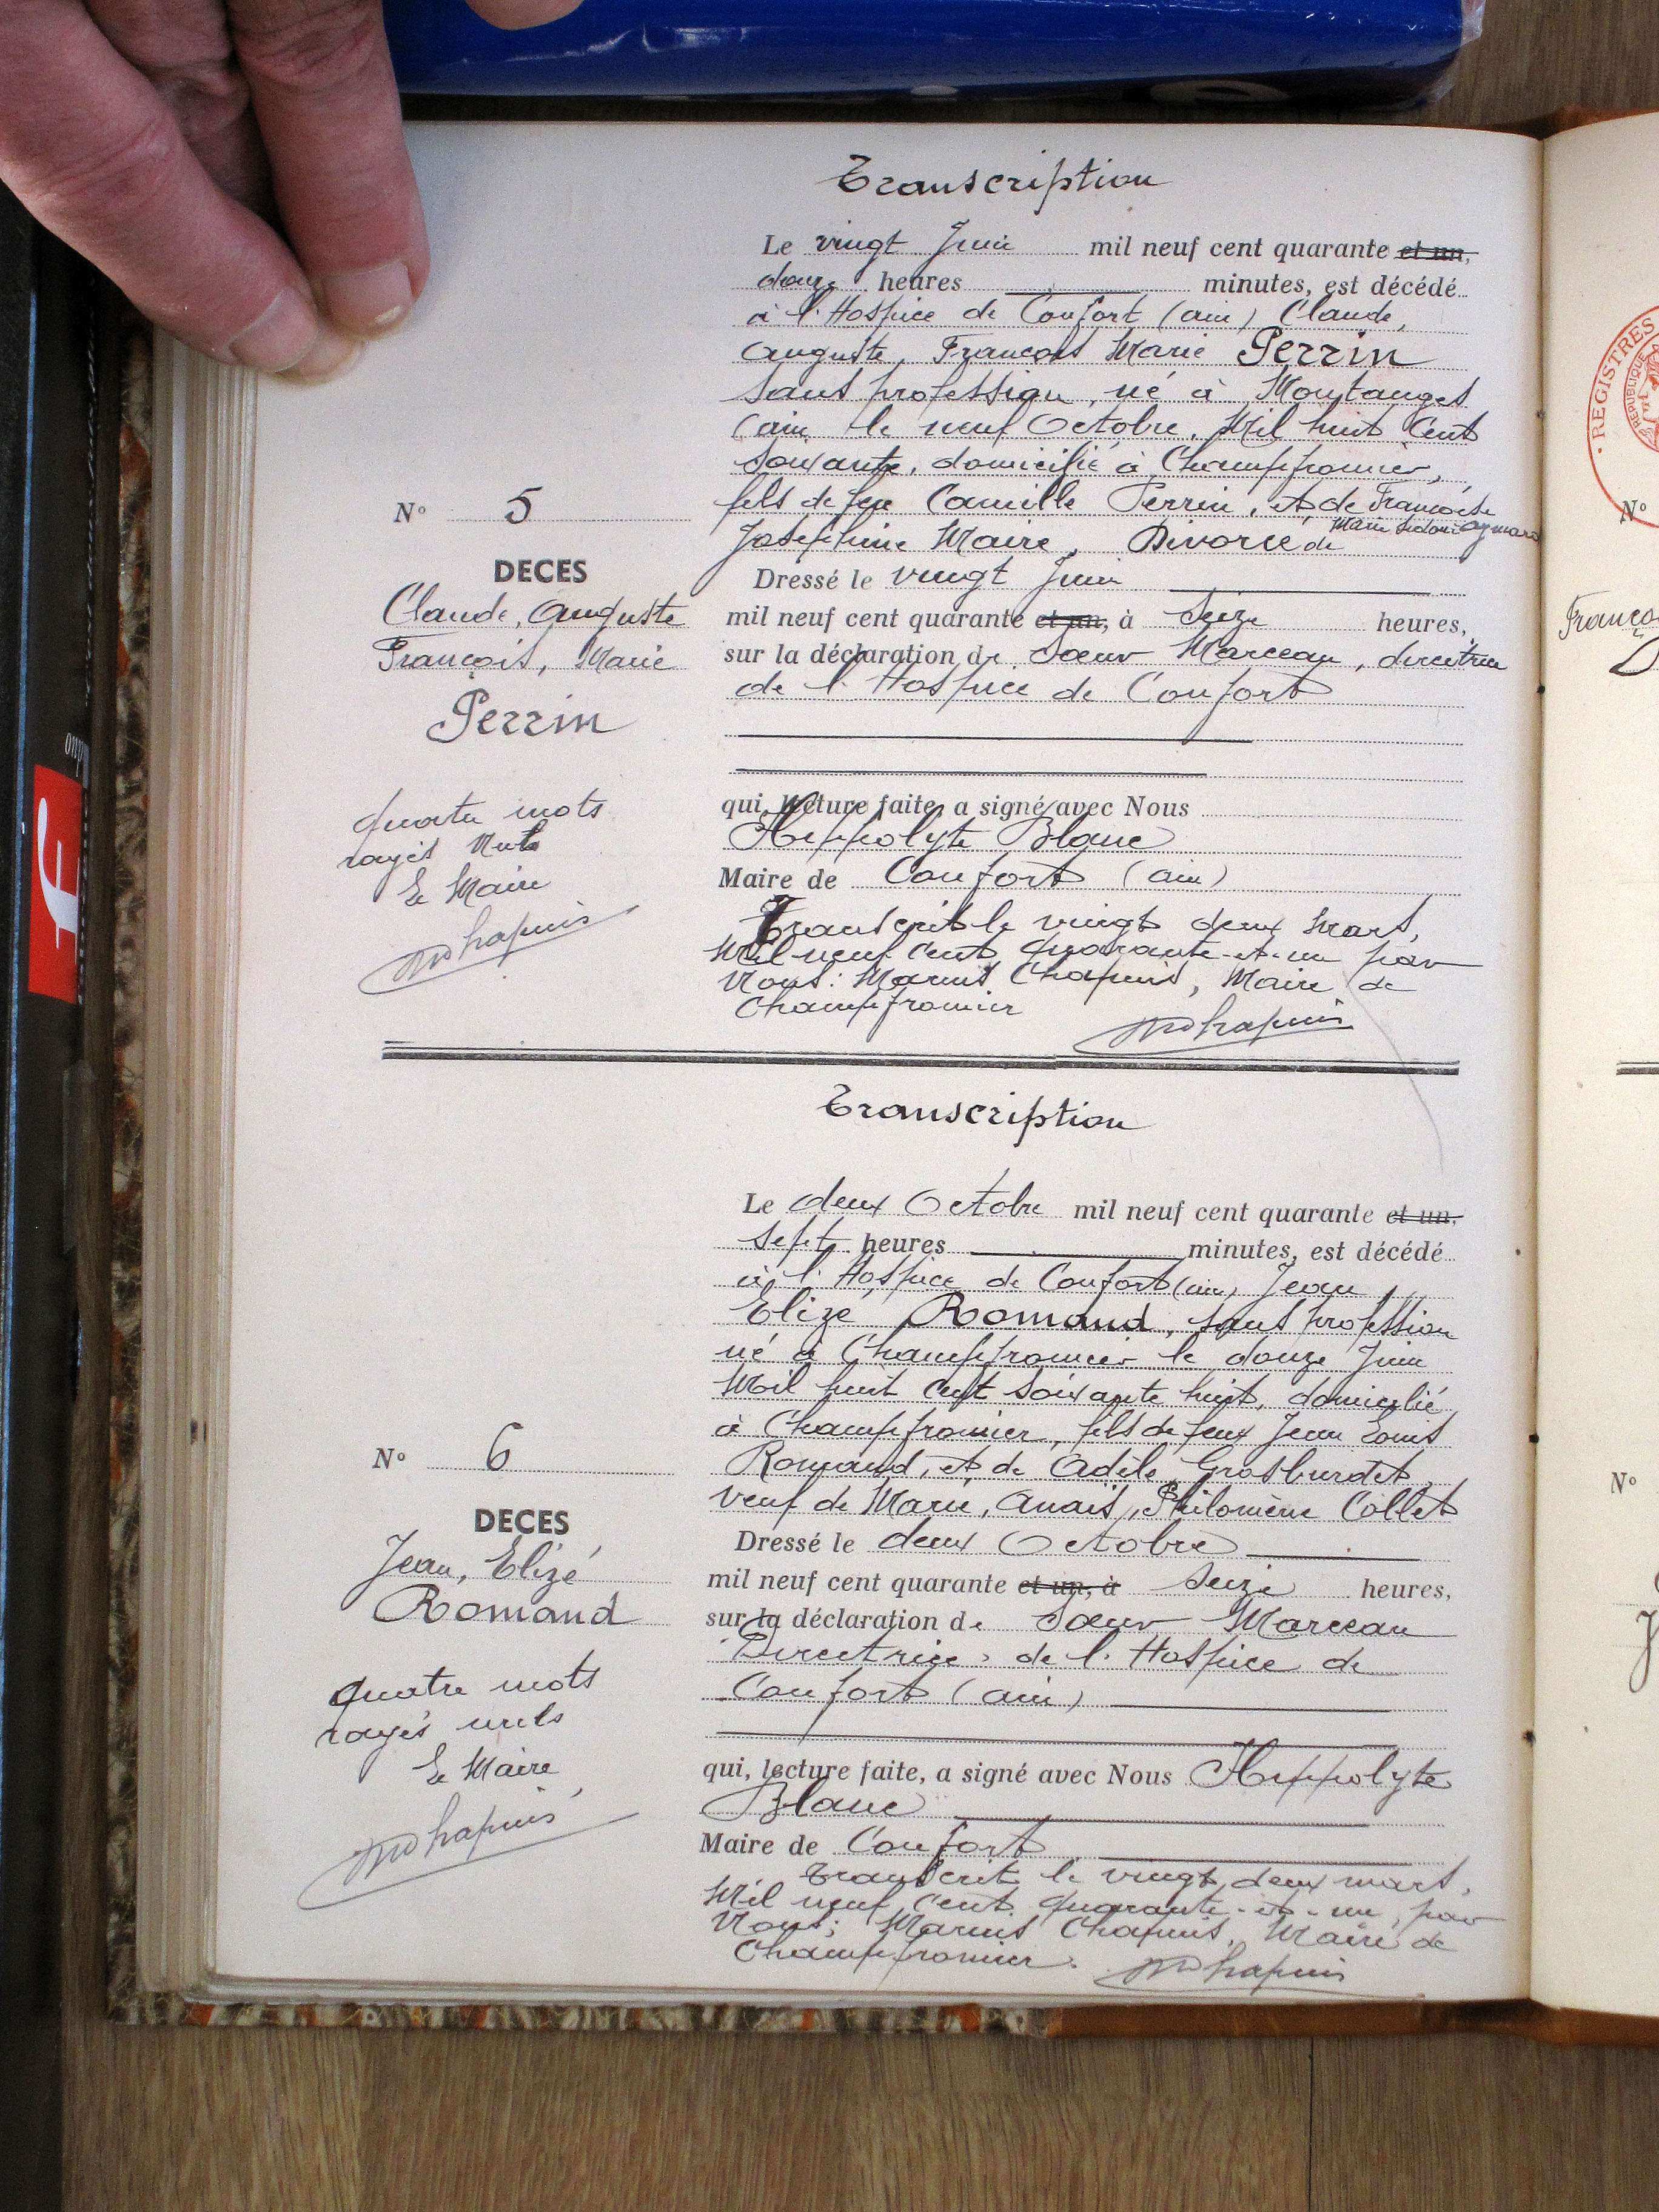 Transcription
Le vingt Juin mil neuf cent quarante et un,
douze heures minutes, est décédé
à l'Hospice de Confort (ain) Claude,
Auguste, François Marie Perrin
sans profession, né à Montanges
(ain le neuf Octobre, Mil huit Cent
soixante, domicilié à Champfromier,
fils de feu Camille Perrin, et de Françoise
Joséphine Maire, Divorcé de Marie
Dressé le vingt Juin
mil neuf cent quarante et un, à Seize heures,
sur la déclaration de Sœur Marceau, directrice
de l'Hospice de Confort
qui, lecture faite, a signé avec Nous
Hippolyte Blanc
Maire de Confort (ain)
Transcrit le vingt deux Mars,
Mil neuf Cent quarante-et-un par
Nous: Marius Chapuis, Maire de
Champfromier
MChapuis
N° 5
DECES
Claude, Auguste
François, Marie
Perrin
quatre mots
rayés Nuls
Le Maire
MChapuis
Transcription
Le deux Octobre mil neuf cent quarante et un,
sept heures minutes, est décédé
à l'Hospice de Confort (ain) Jean,
Elizé Romand, sans profession
né à Champfromier le douze Juin
Mil huit cent soixante huit, domicilié
à Champfromier, fils de feux Jean Louis
Romand, et de Adèle Grosburdet,
veuf de Marie, Anaïs, Philomène Collet
Dressé le deux Octobre
mil neuf cent quarante et un, à Seize heures,
sur la déclaration de Sœur Marceau
Directrice de l'Hospice de
Confort (ain)
qui, lecture faite, a signé avec Nous Hippolyte
Blanc
Maire de Confort
Transcrit le vingt deux mars,
Mil neuf Cent quarante-et-un, par
Nous; Marius Chapuis, Maire de
Champfromier.
MChapuis
N° 6
DECES
Jean, Elizé
Romand
quatre mots
rayés nuls
Le Maire
MChapuis
REGISTRES
REPUBLIQUE
N°
N°